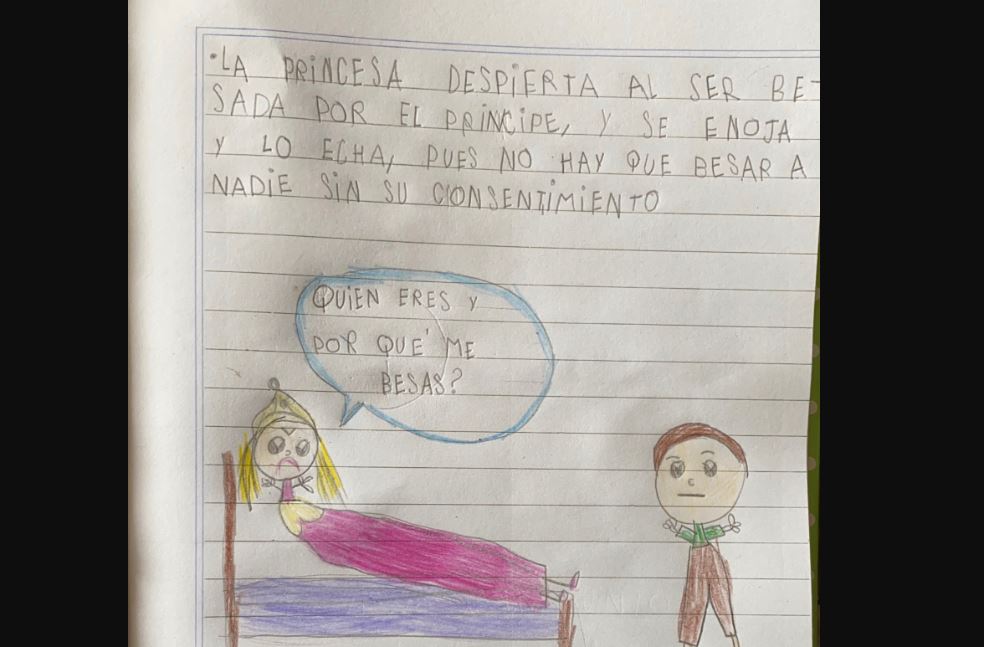 •LA PRINCESA DESPIERTA AL SER BE-
SADA POR EL PRINCIPE, Y SE ENOJA
Y LO ECHA, PUES NO HAY QUE BESAR A
NADIE SIN SU CONSENTIMIENTO
QUIEN ERES Y
POR QUÉ ME
BESAS?